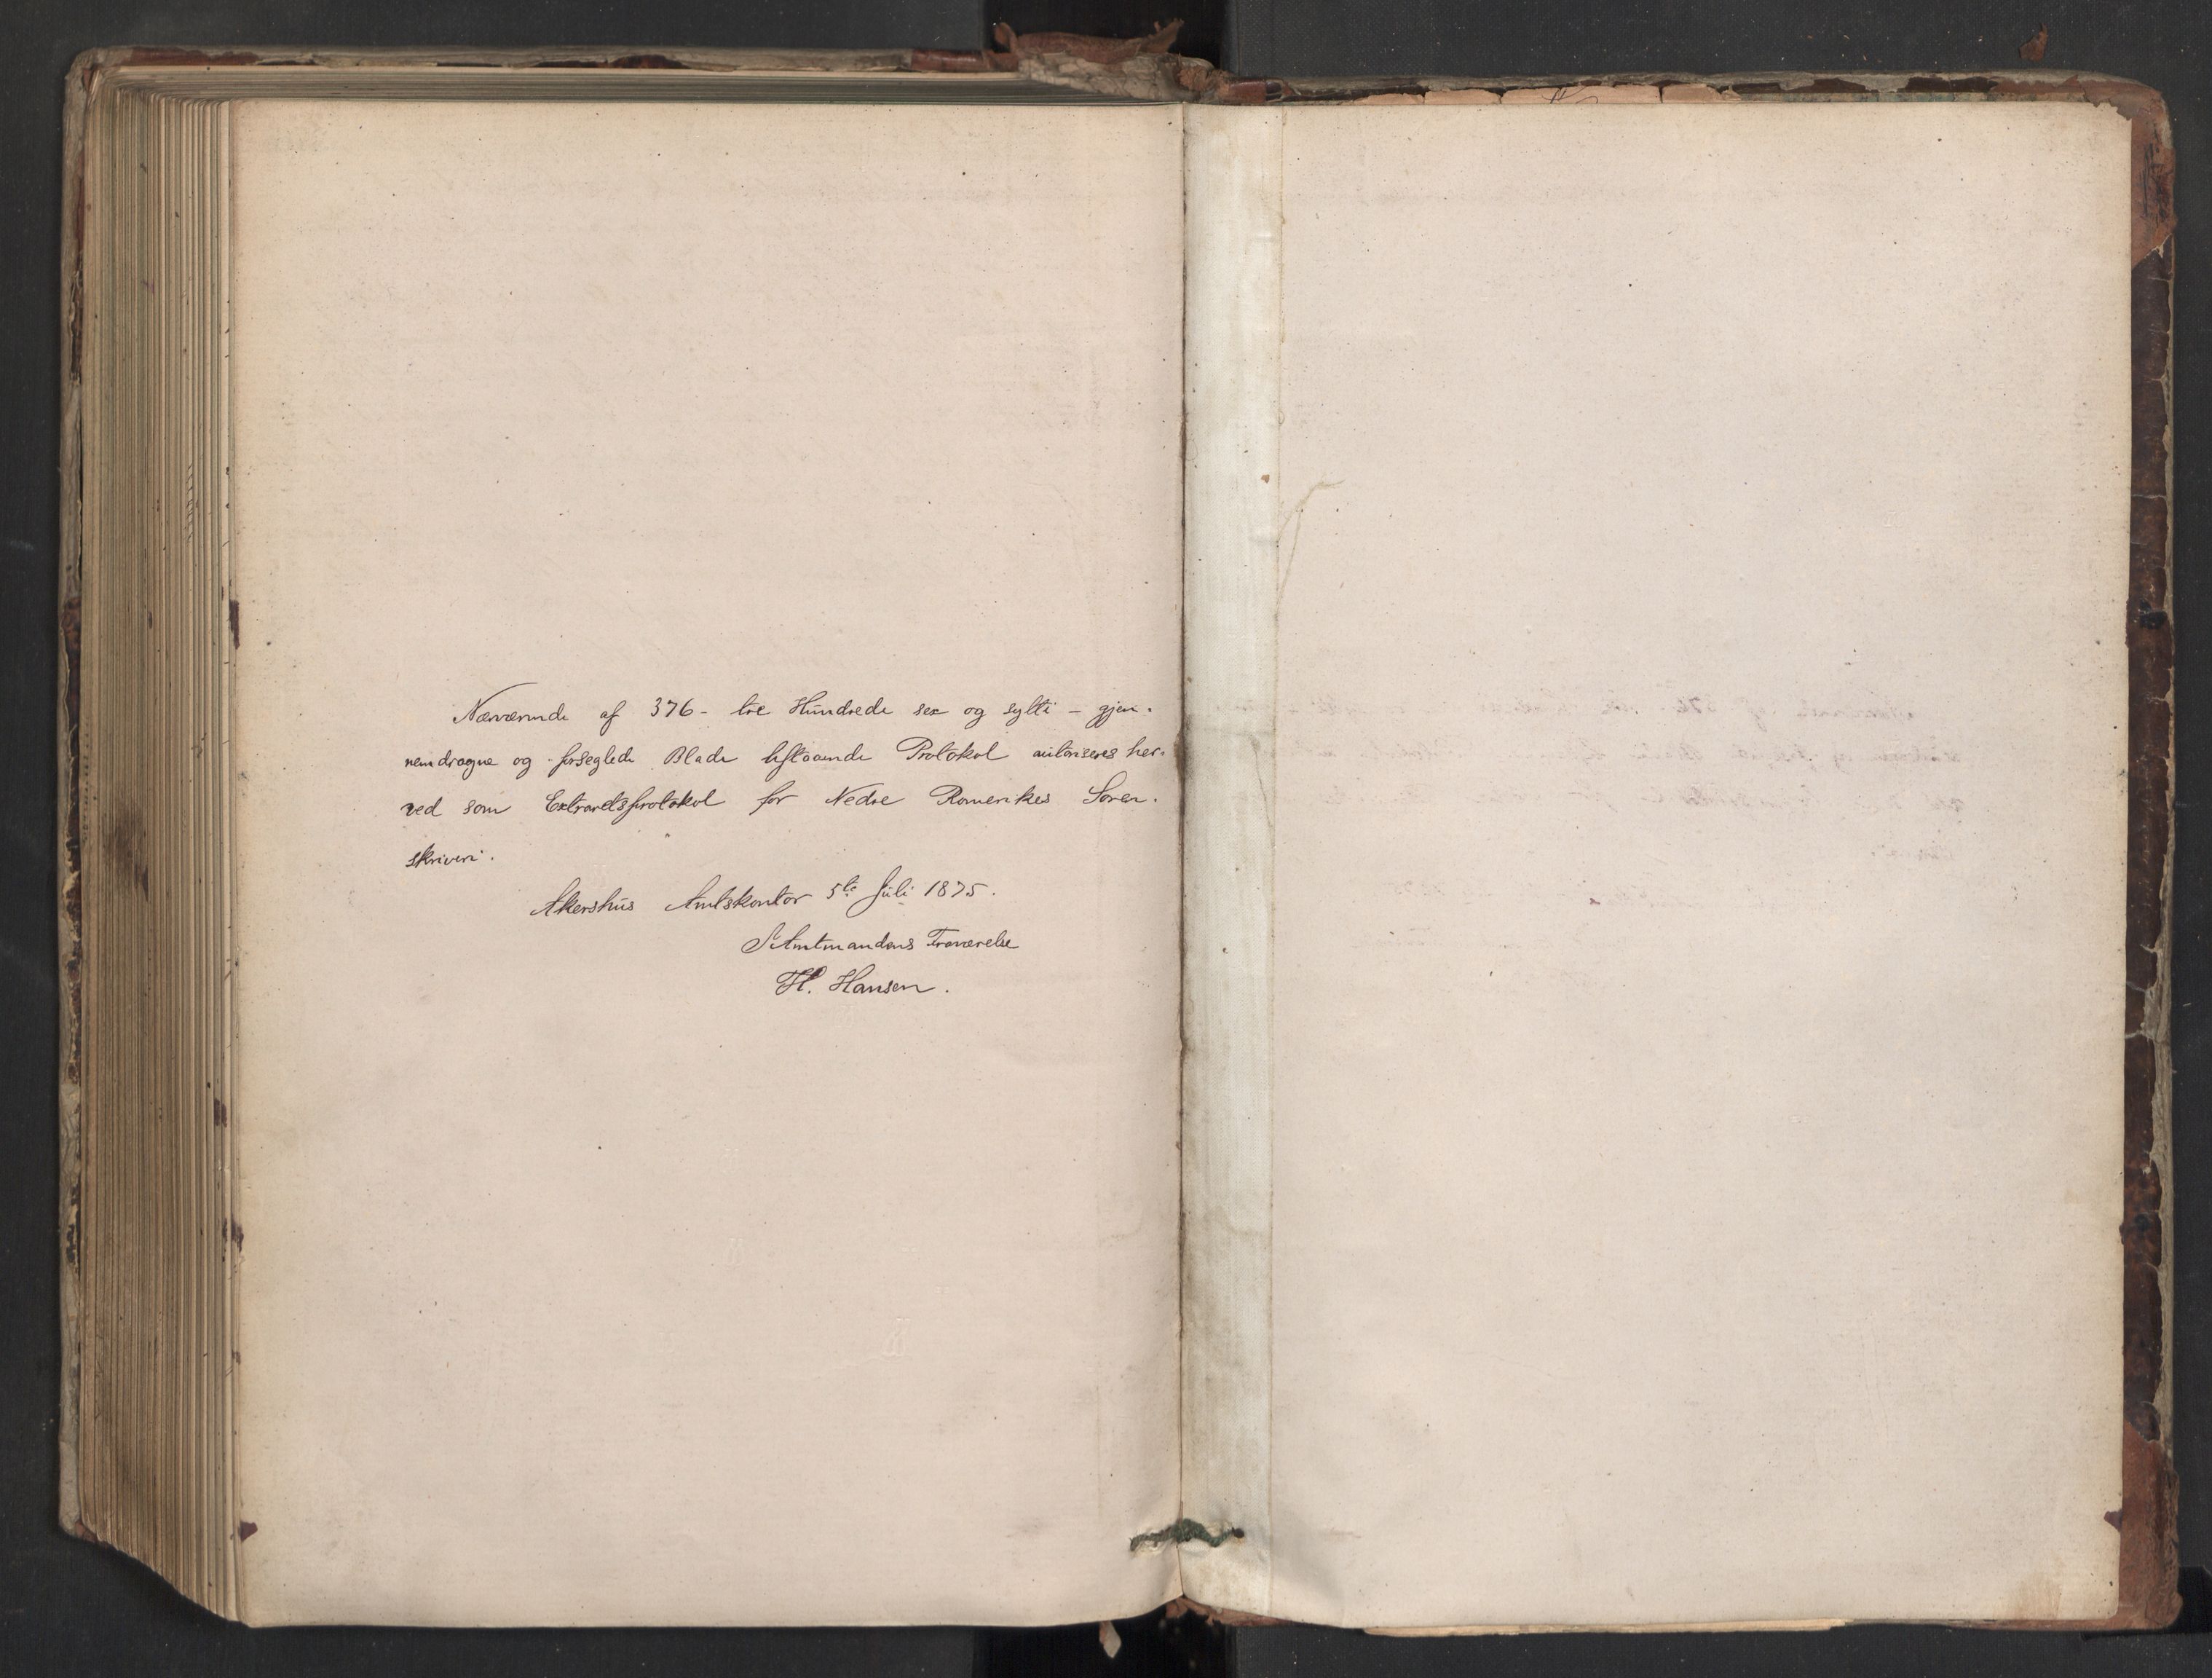 Nærværende af 376 - tre Hundrede sex og sytti - gjen-
nemdragne og forseglede Blade bestaaende Protokol autoriseres her-
ved som Extraretsprotokol for Nedre Romerikes Soren-
skriveri.
Akershus Amtskontor 5te Juli 1875.
I Amtmandens Fraværelse
H. Hansen.